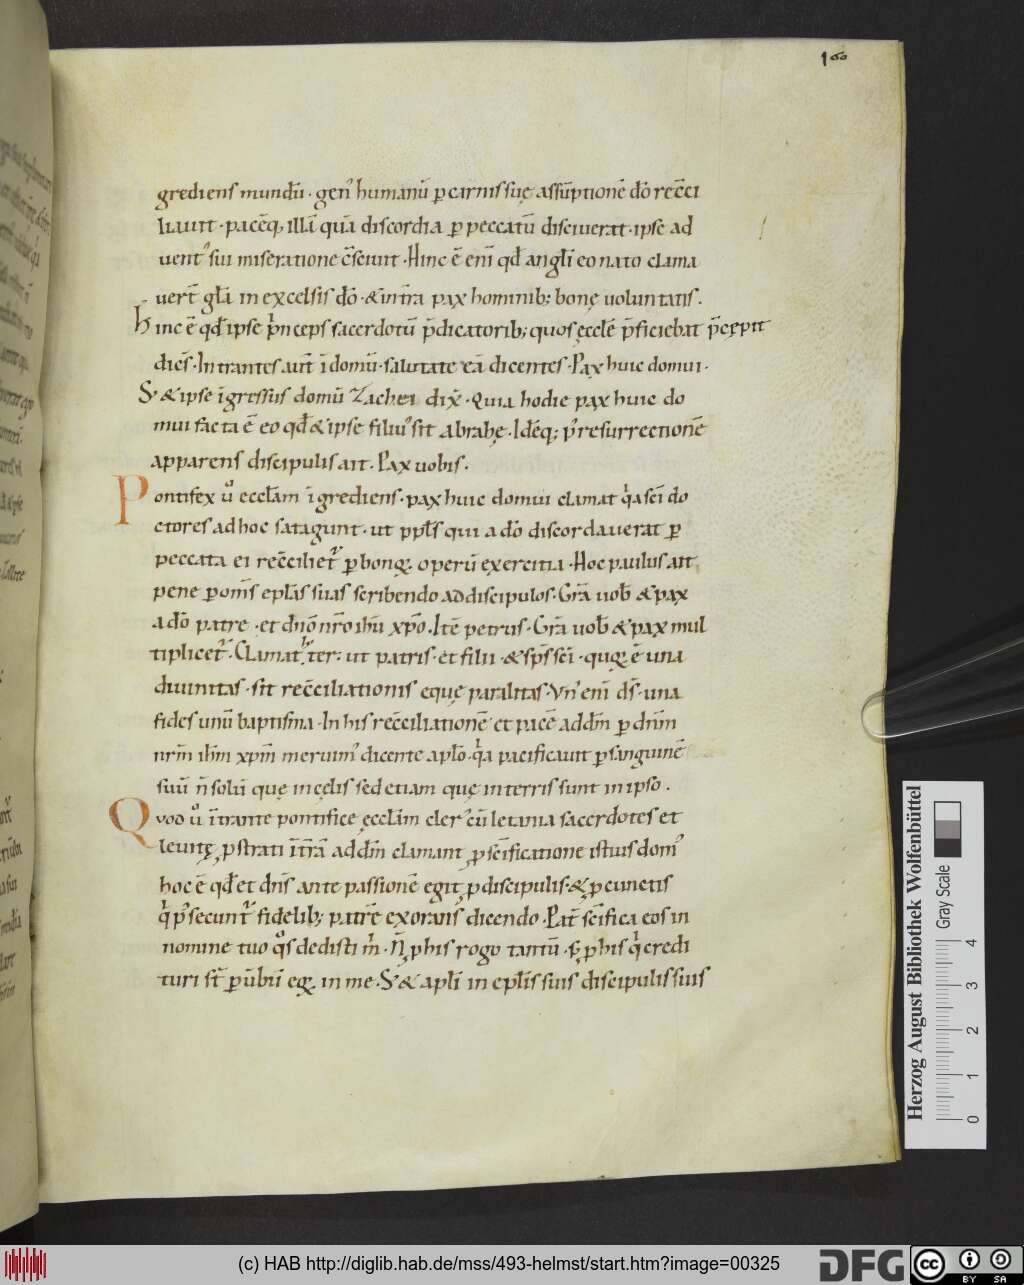 160
grediens mundū · gen᾽ humanū ꝑ carnis suę assūptionē dō recc̄i
liauit · pacēq; illā quā discordia ꝑ peccatū disciuerat · ipse ad
uent᾽ sui miseratione c̄sciuit · Hinc ē eni̅ qd̄ angli̅ eo nato clama
uert̄ gl̄a in excelsis dō · & in t̄ra pax hominib; bonę uoluntatis .
Hinc ē qd̄ ipse p̄nceps sacerdotū p̄dicatorib; quos ęcclē p̄ficiebat p̄cępit
dicēs · Intrantes aut̄ ī domū · salutate eā dicentes · Pax huic domui .
S; & ipse īgressus domū Zachei dix̄ · Quia hodie pax huic do
mui facta ē eo qd̄ & ipse filiu᾽ sit abrahę · Idēq; p᾽ resurrectionē
apparens discipulis ait · Pax uobis .
Pontifex u̾ ecclām īgrediens · pax huic domui clamat q̄a sc̄i do
ctores ad hoc satagunt · ut ppl̄s qui a dō discordauerat ꝑ
peccata ei recc̄iliet᾽ ꝑ bonoꝝ operū exercitia · Hoc paulus ait
pene ꝑ om̄s eplās suas scribendo ad discipulos · Grā uob̄ & pax
a dō patre · et dn̄o nr̄o ihū xpō · Itē petrus · Grā uob̄ & pax mul
tiplicet᾽ · Clamat᾽ h̾ ter : ut patris · et filii · & sp̄s sc̄i · quoꝝ ē una
diuinitas · sit recc̄iliationis eque paralitas · Vn᾽ eni̅ ds̄ · una
fides unū baptisma · In his recc̄iliationē et pacē ad dm̄ ꝑ dnm̄
nrm̄ ihm̄ xpm̄ meruim᾽ dicente aplō · q̄a pacificauit ꝑ sanguinē
suū n̄ solū que in cęlis sed etiam que in terris sunt in ipso .
Quod u̾ ītrante pontifice ęcclām cler᾽ cū letania sacerdotes et
leuitę ꝓstrati ī t̄ra ad dm̄ clamant ꝓ sc̄ificatione istius dom᾽
hoc ē qd̄ et dn̄s ante passionē egit ꝓ discipulis · & ꝓ cunctis
q̄ p᾽ secunt᾽ fidelib; patrē exorans dicendo · Pat̄ sc̄ifica eos in
nomine tuo q̊s dedisti m̄ · N̄ ꝓ his rogo tantū · s; & ꝓ his q̄ credi
turi st̄ ꝑ ūbū eoꝝ in me · S; & apli̅ in epl̄is suis discipulis suis
Herzog August Bibliothek Wolfenbüttel
Gray Scale
0 1 2 3 4
(c) HAB http://diglib.hab.de/mss/493-helmst/start.htm?image=00325
DFG
cc BY SA